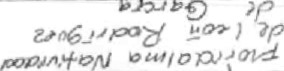 Floridalma Natividad
de León Rodríguez
de García